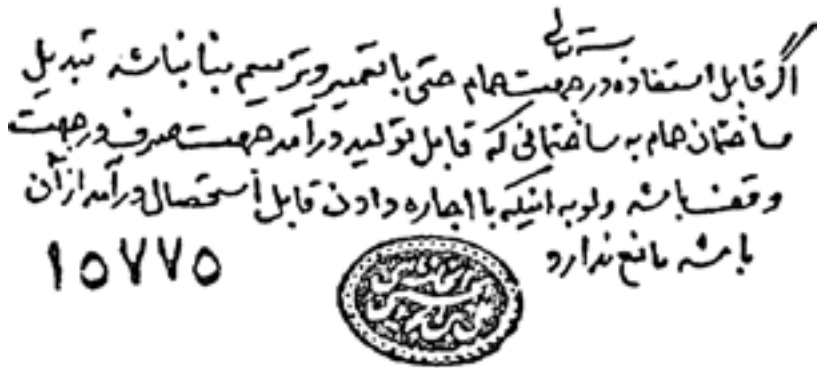 بسمه تعالی
اگر قابل استفاده در جهت حمام حتی با تعمیر و ترمیم بنا نباشد تبدیل
ساختمان حمام به ساختمانی که قابل تولید درآمد جهت صرف در جهت
وقف باشد ولو به اینکه با اجاره دادن قابل استحصال درآمد از آن
باشد مانع ندارد
۱۵۷۷۵